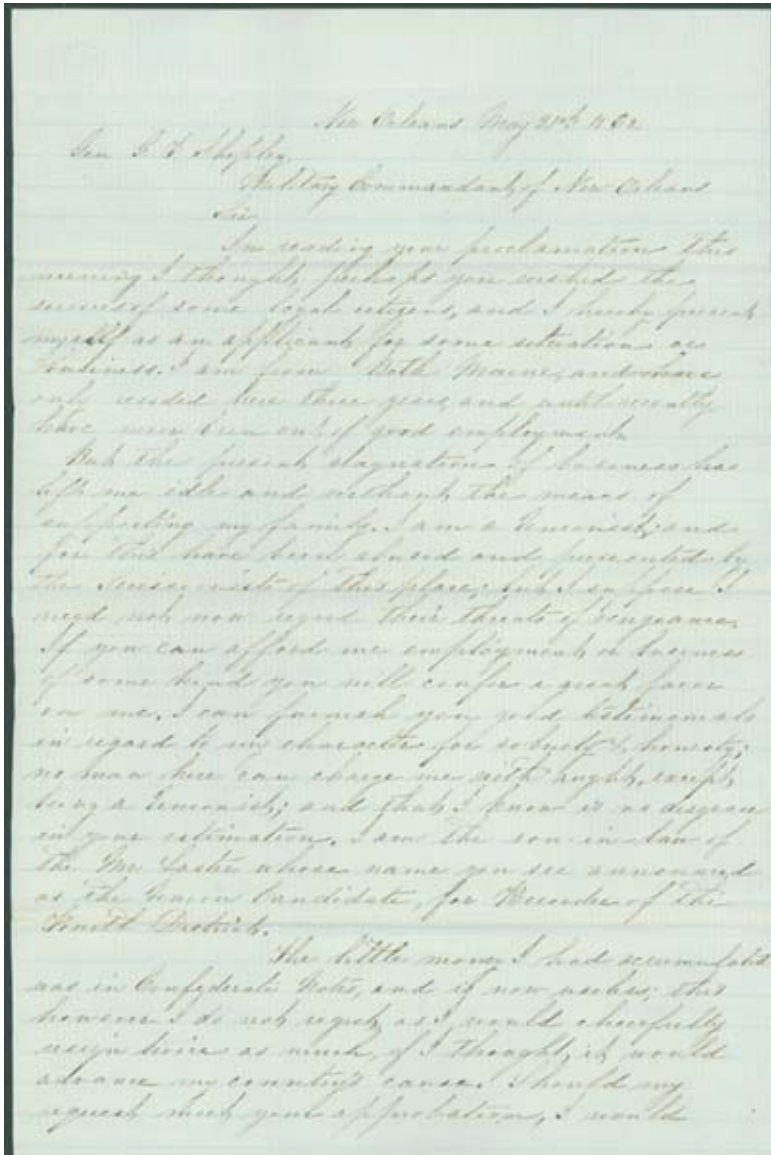 New Orleans May 21st 1862
Gen G. F. Shepley
Military Commandant of New Orleans
Sir
In reading your proclamation this
morning I thought perhaps you wished the
services of some loyal citizens, and I hereby present
myself as an applicant for some situation or
business. I am from Bath Maine, and have
only resided here three years, and until recently
have never been out of good employment.
But the present stagnation of business has
left me idle and without the means of
supporting my family. I am a Unionist; and
for this have been abused and persecuted by
the Secessionists of this place; but I suppose I
need not now regard their threats of vengeance.
If you can afford me employment or business
of some kind you will confer a great favor
on me. I can furnish you good testimonials
in regard to my character for sobriety & honesty;
no man here can charge me with aught, except
being a Unionist; and that I know is no disgrace
in your estimation. I am the son-in-law of
the Mr whose name you see announced
as the Union Candidate, for Recorder of the
Fourth District.
The little money I had accumulated
was in Confederate Notes, and is now useless; this
however I do not regret, as I would cheerfully
resign twice as much, if I thought, it would
advance my country's cause. Should my
request meet your approbation, I would